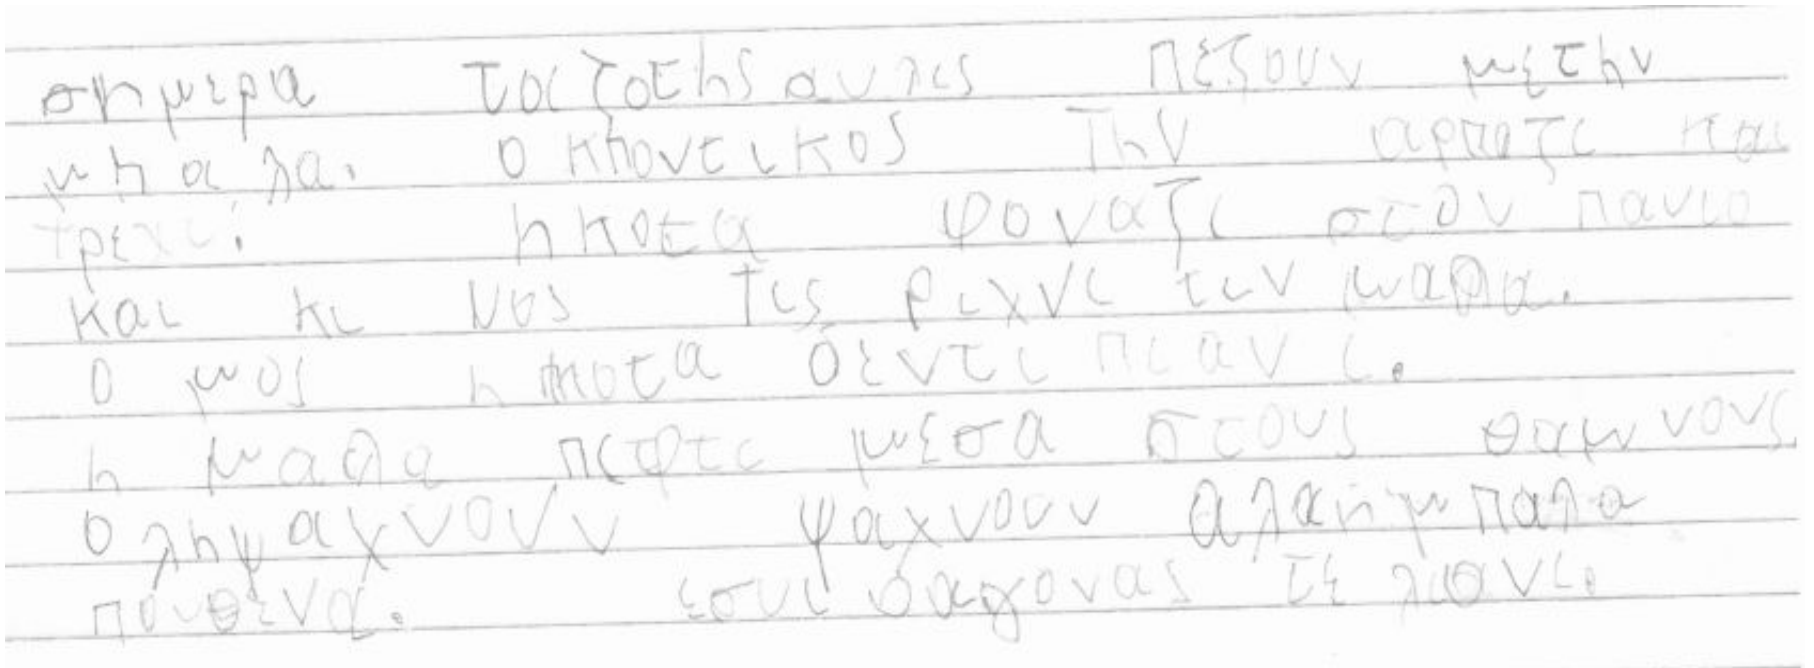 σημερα τα ζοτης αυλις πεζουν με την
μπαλα. ο κποντικος Την αρπαζι και
τρεχι. η κοτα φοναζι στον πανιο
και κι νος Τις ριχνι τιν μαλα.
ο μος η κοτα δεντι πιανι.
η μαλα πεφτι μεσα στους θαμνους
ο λη ψαχνουν ψαχνουν αλα η μπαλα
πουθενα.